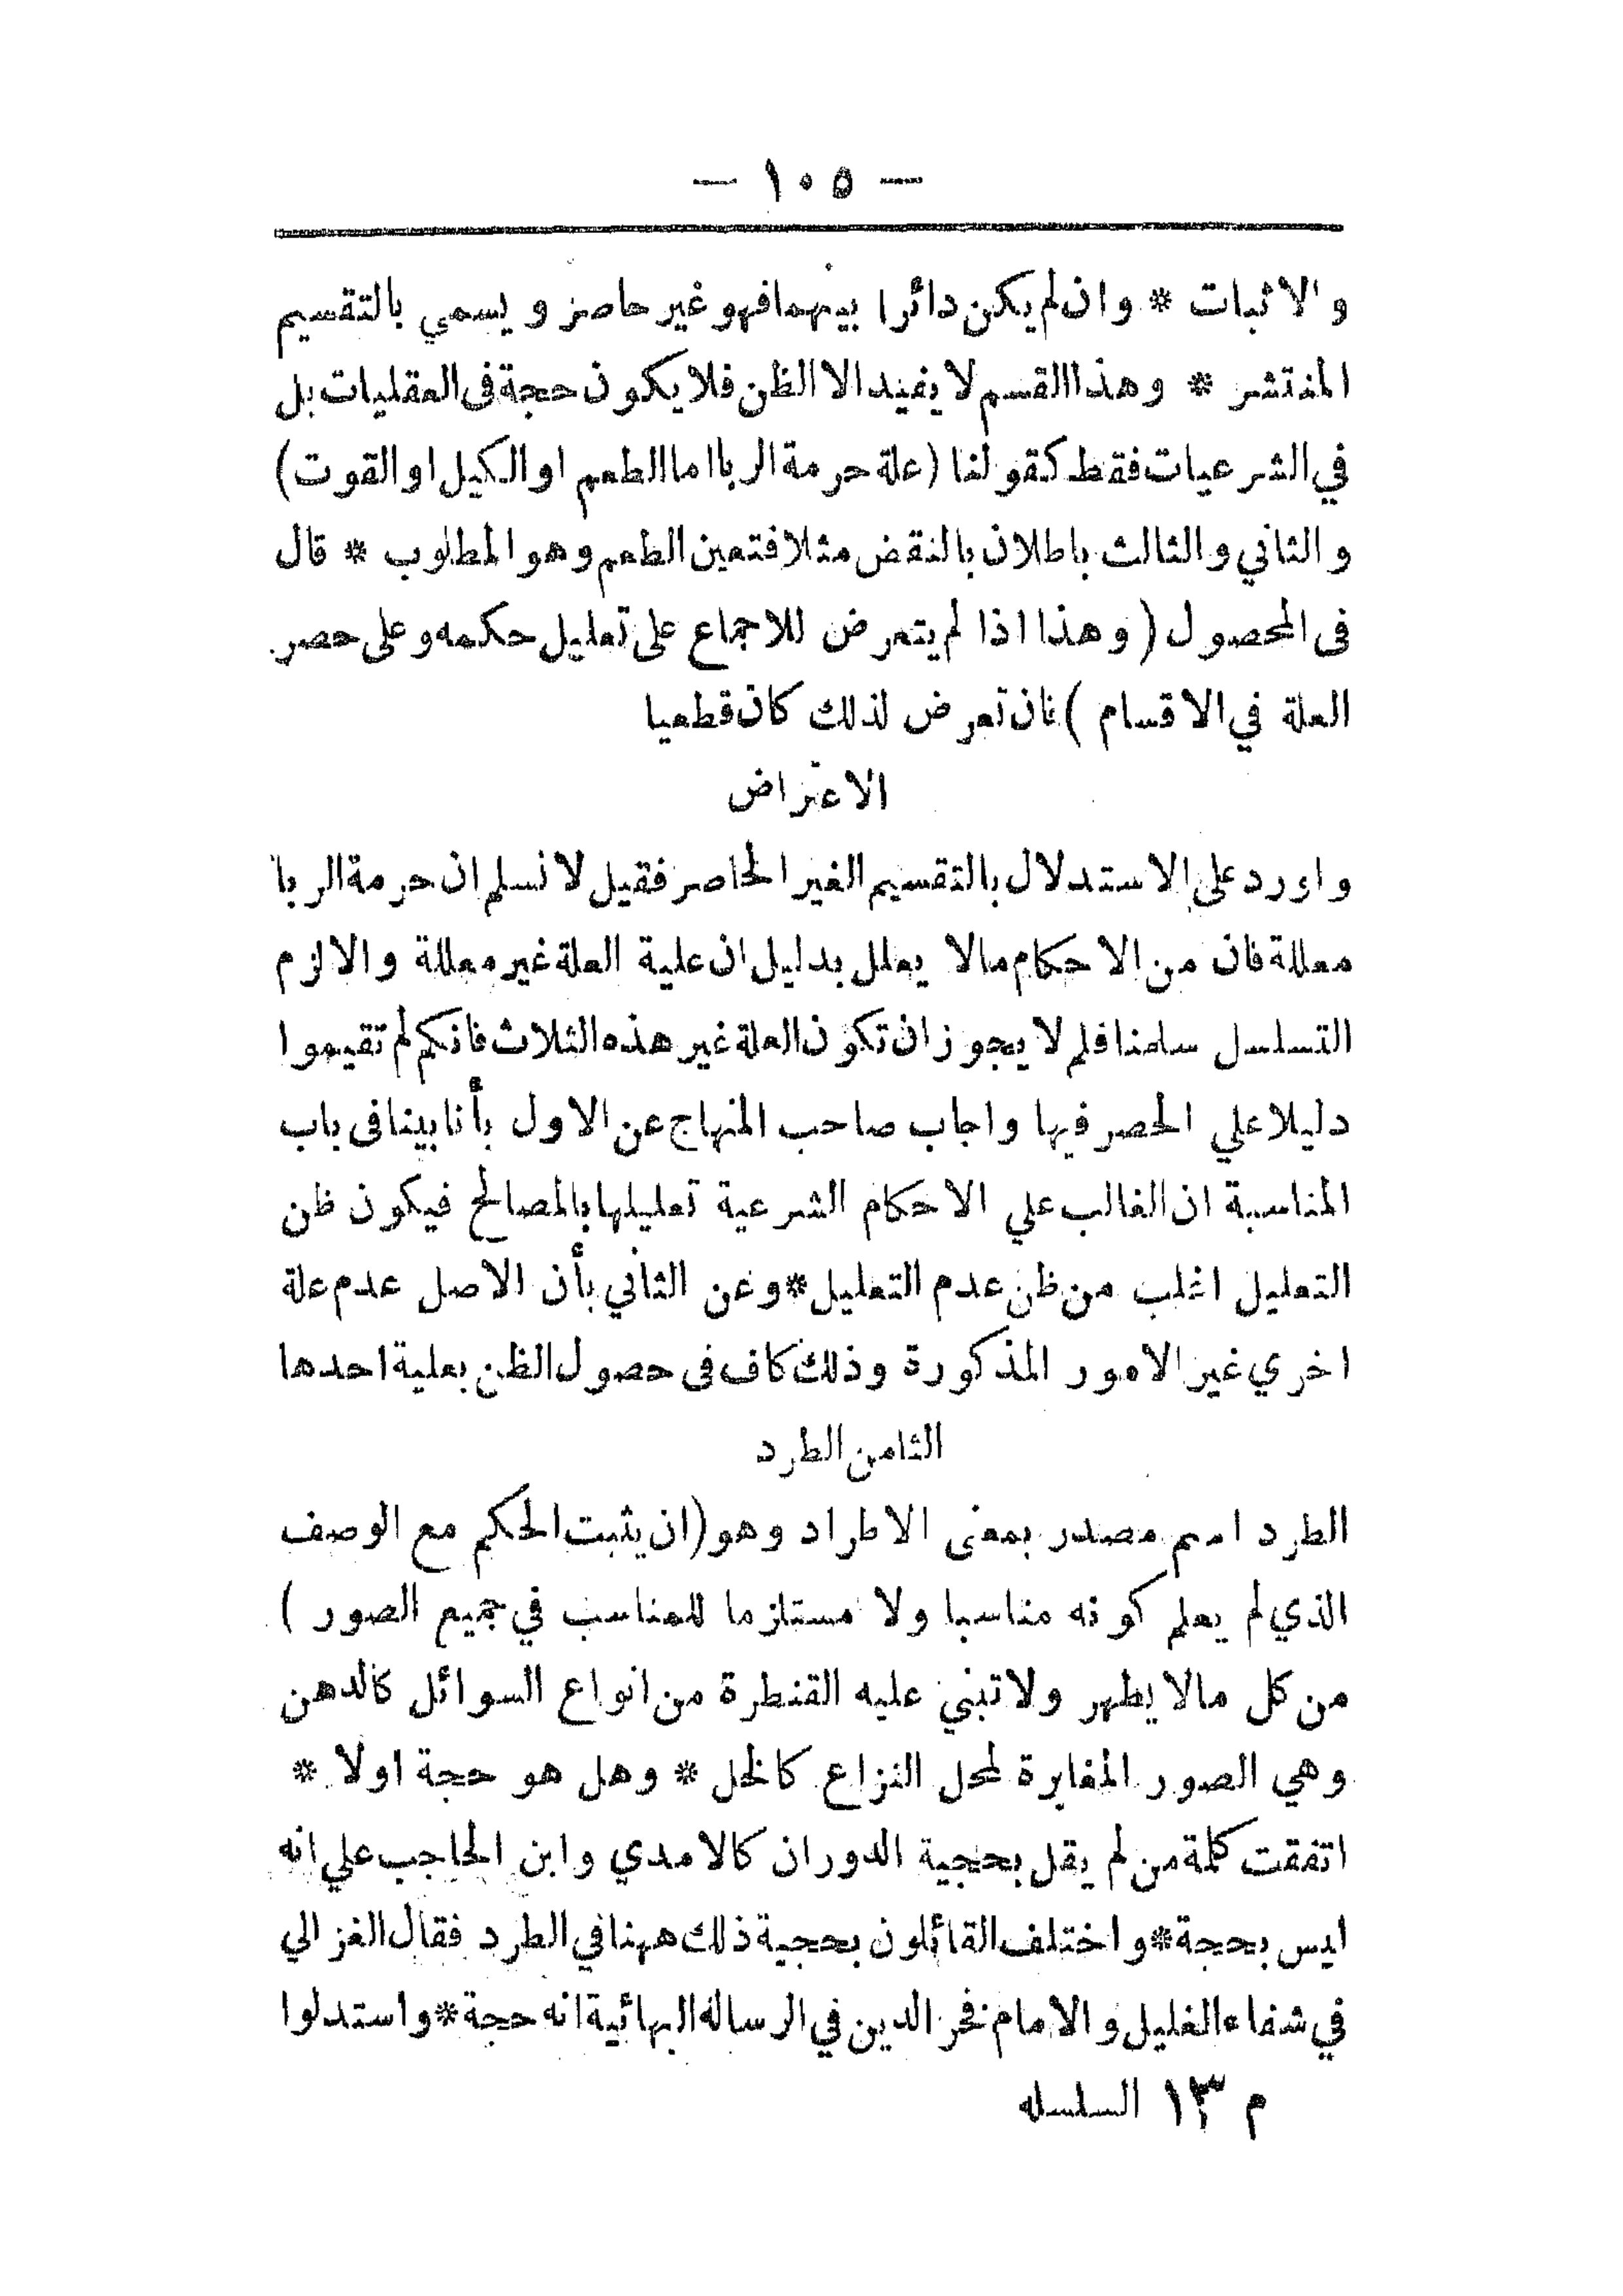 — ١٠٥ —
والاثبات * وان لم يكن دائرا بينهما فهو غير حاصر ويسمي بالتقسيم
المنتشر * وهذا القسم لا يفيد الا الظن فلا يكون حجة فى العقليات بل
في الشرعيات فقط كقولنا (علة حرمة الربا اما الطعم او الكيل او القوت)
والثاني والثالث باطلان بالنقض مثلا فتعين الطعم وهو المطلوب * قال
فى المحصول (وهذا اذا لم يتعرض للاجماع على تعليل حكمه وعلى حصر
العلة في الاقسام) فان تعرض لذلك كان قطعيا
الاعتراض
واورد على الاستدلال بالتقسيم الغير الحاصر فقيل لا نسلم ان حرمة الربا
معللة فان من الاحكام مالا يعلل بدليل ان علية العلة غير معللة والا لزم
التسلسل سلمنا فلم لا يجوز ان تكون العلة غير هذه الثلاث فانكم لم تقيموا
دليلا علي الحصر فيها واجاب صاحب المنهاج عن الاول بأنا بينا فى باب
المناسبة ان الغالب علي الاحكام الشرعية تعليلها بالمصالح فيكون ظن
التعليل اغلب من ظن عدم التعليل * وعن الثاني بأن الاصل عدم علة
اخري غير الامور المذكورة وذلك كاف فى حصول الظن بعلية احدها
الثامن الطرد
الطرد اسم مصدر بمعنى الاطراد وهو (ان يثبت الحكم مع الوصف
الذي لم يعلم كونه مناسبا ولا مستلزما للمناسب في جميع الصور)
من كل مالا يطهر ولا تبني عليه القنطرة من انواع السوائل كالدهن
وهي الصور المغايرة لمحل النزاع كالخل * وهل هو حجة اولا *
اتفقت كلمة من لم يقل بحجية الدوران كالامدي وابن الحاجب علي انه
ليس بحجة * واختلف القائلون بحجية ذلك ههنا في الطرد فقال الغزالي
في شفاء الغليل والامام فخر الدين في الرسالة البهائية انه حجة * واستدلوا
م ١٣ السلسله